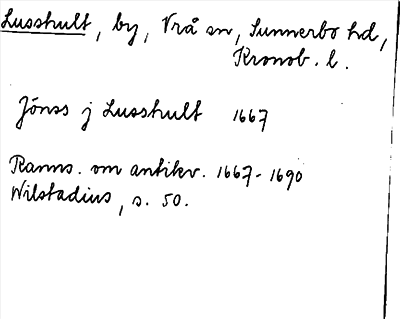 Lusshult, by, Vrå sn, Sunnerbo hd,
Kronob. l.
Jönss j Lusshult 1667
Ranns. om antikv. 1667-1690
Wilstadius, s. 50.